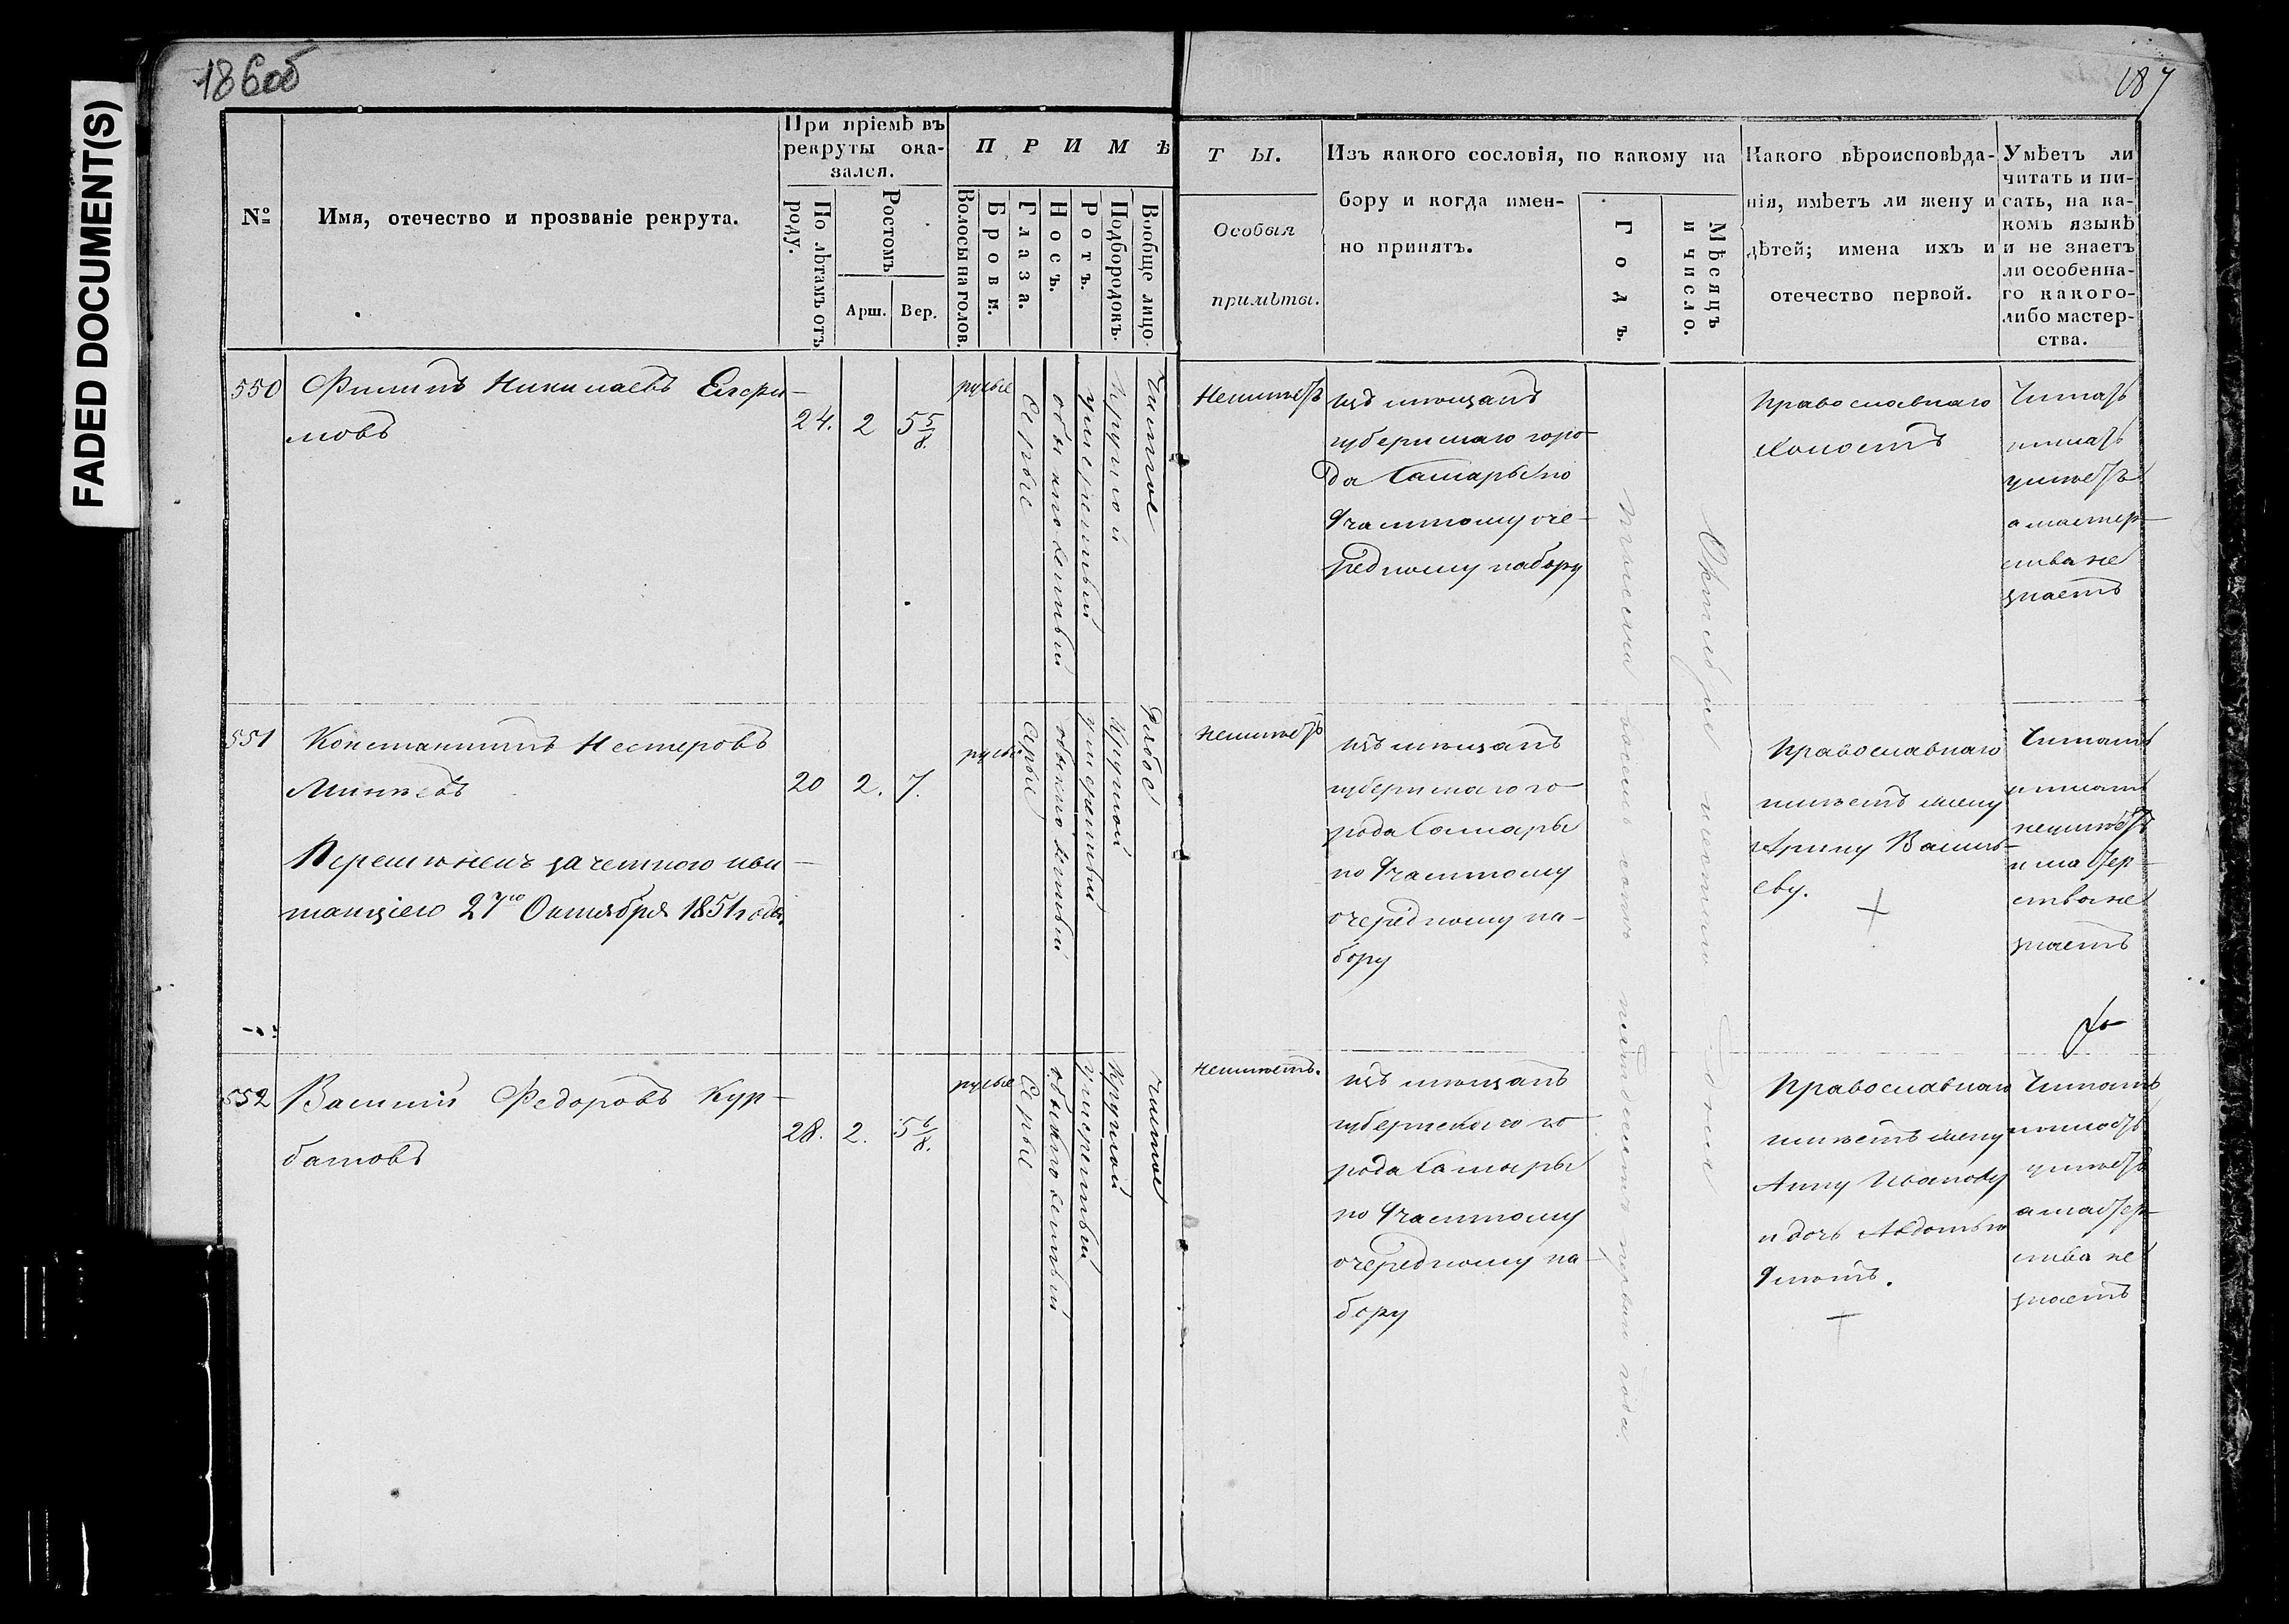 FADED DOCUMENT(S)
186об
187
№
Имя, отечество и прозваніе рекрута.
При пріемѣ въ
рекруты ока-
зался.
По лѣтамъ отъ
роду.
Ростомъ
Арш. Вер.
П Р И М Ѣ
Волосы на голов.
Брови.
Глаза.
Носъ.
Ротъ.
Подбородокъ.
Вообще лицо.
Т Ы.
Особыя
примѣты.
Изъ какого сословія, по какому на
бору и когда имен-
но принятъ.
Годъ.
Мѣсяцъ
и число.
Какого вѣроисповѣда-
нія, имѣетъ ли жену и
дѣтей; имена ихъ и
отечество первой.
Умѣетъ ли
читать и пи-
сать, на ка-
комъ языкѣ
и не знаетъ
ли особенна-
го какого-
либо мастер-
ства.
550
Филипъ Николаевъ
24. 2 5 5/8.
русые
Серые
обыкновенный
умеренный
Круглой
Чистое
Неимѣетъ
изъ мѣщанъ
губернскаго горо-
да Самары по
9 частному оче-
редному набору
Православнаго
Холостъ
Читать
писать
умѣетъ
а мастер-
ства не
знаетъ
551
Константинъ Нестеровъ
Минѣевъ
20 2. 7.
русые
Серые
обыкновенный
умеренный
Круглой
Рябое
неимѣетъ
изъ мѣщанъ
губернскаго го-
рода Самары
по 9 частному
очередному на-
бору
Православнаго
имѣетъ жену
Арину Василь-
еву.
Читать
писать
неумѣетъ
и мастер-
ства не
знаетъ
зачетною кви-
танціею 27го Октября 1851 года
552
Василий Федоровъ Кур-
батовъ
28. 2. 5 6/8.
русые
Серые
обыкновенный
умеренный
Круглой
чистое
неимѣетъ.
изъ мѣщанъ
губернскаго го-
рода Самары
по 9 частному
очередному на-
бору
Православнаго
имѣетъ жену
Анну Иванову
и дочь Авдотью
9 лѣтъ.
Читать
писать
умѣетъ
а мастер-
ства не
знаетъ
Тысяча восемь сотъ пятдесятъ перваго года.